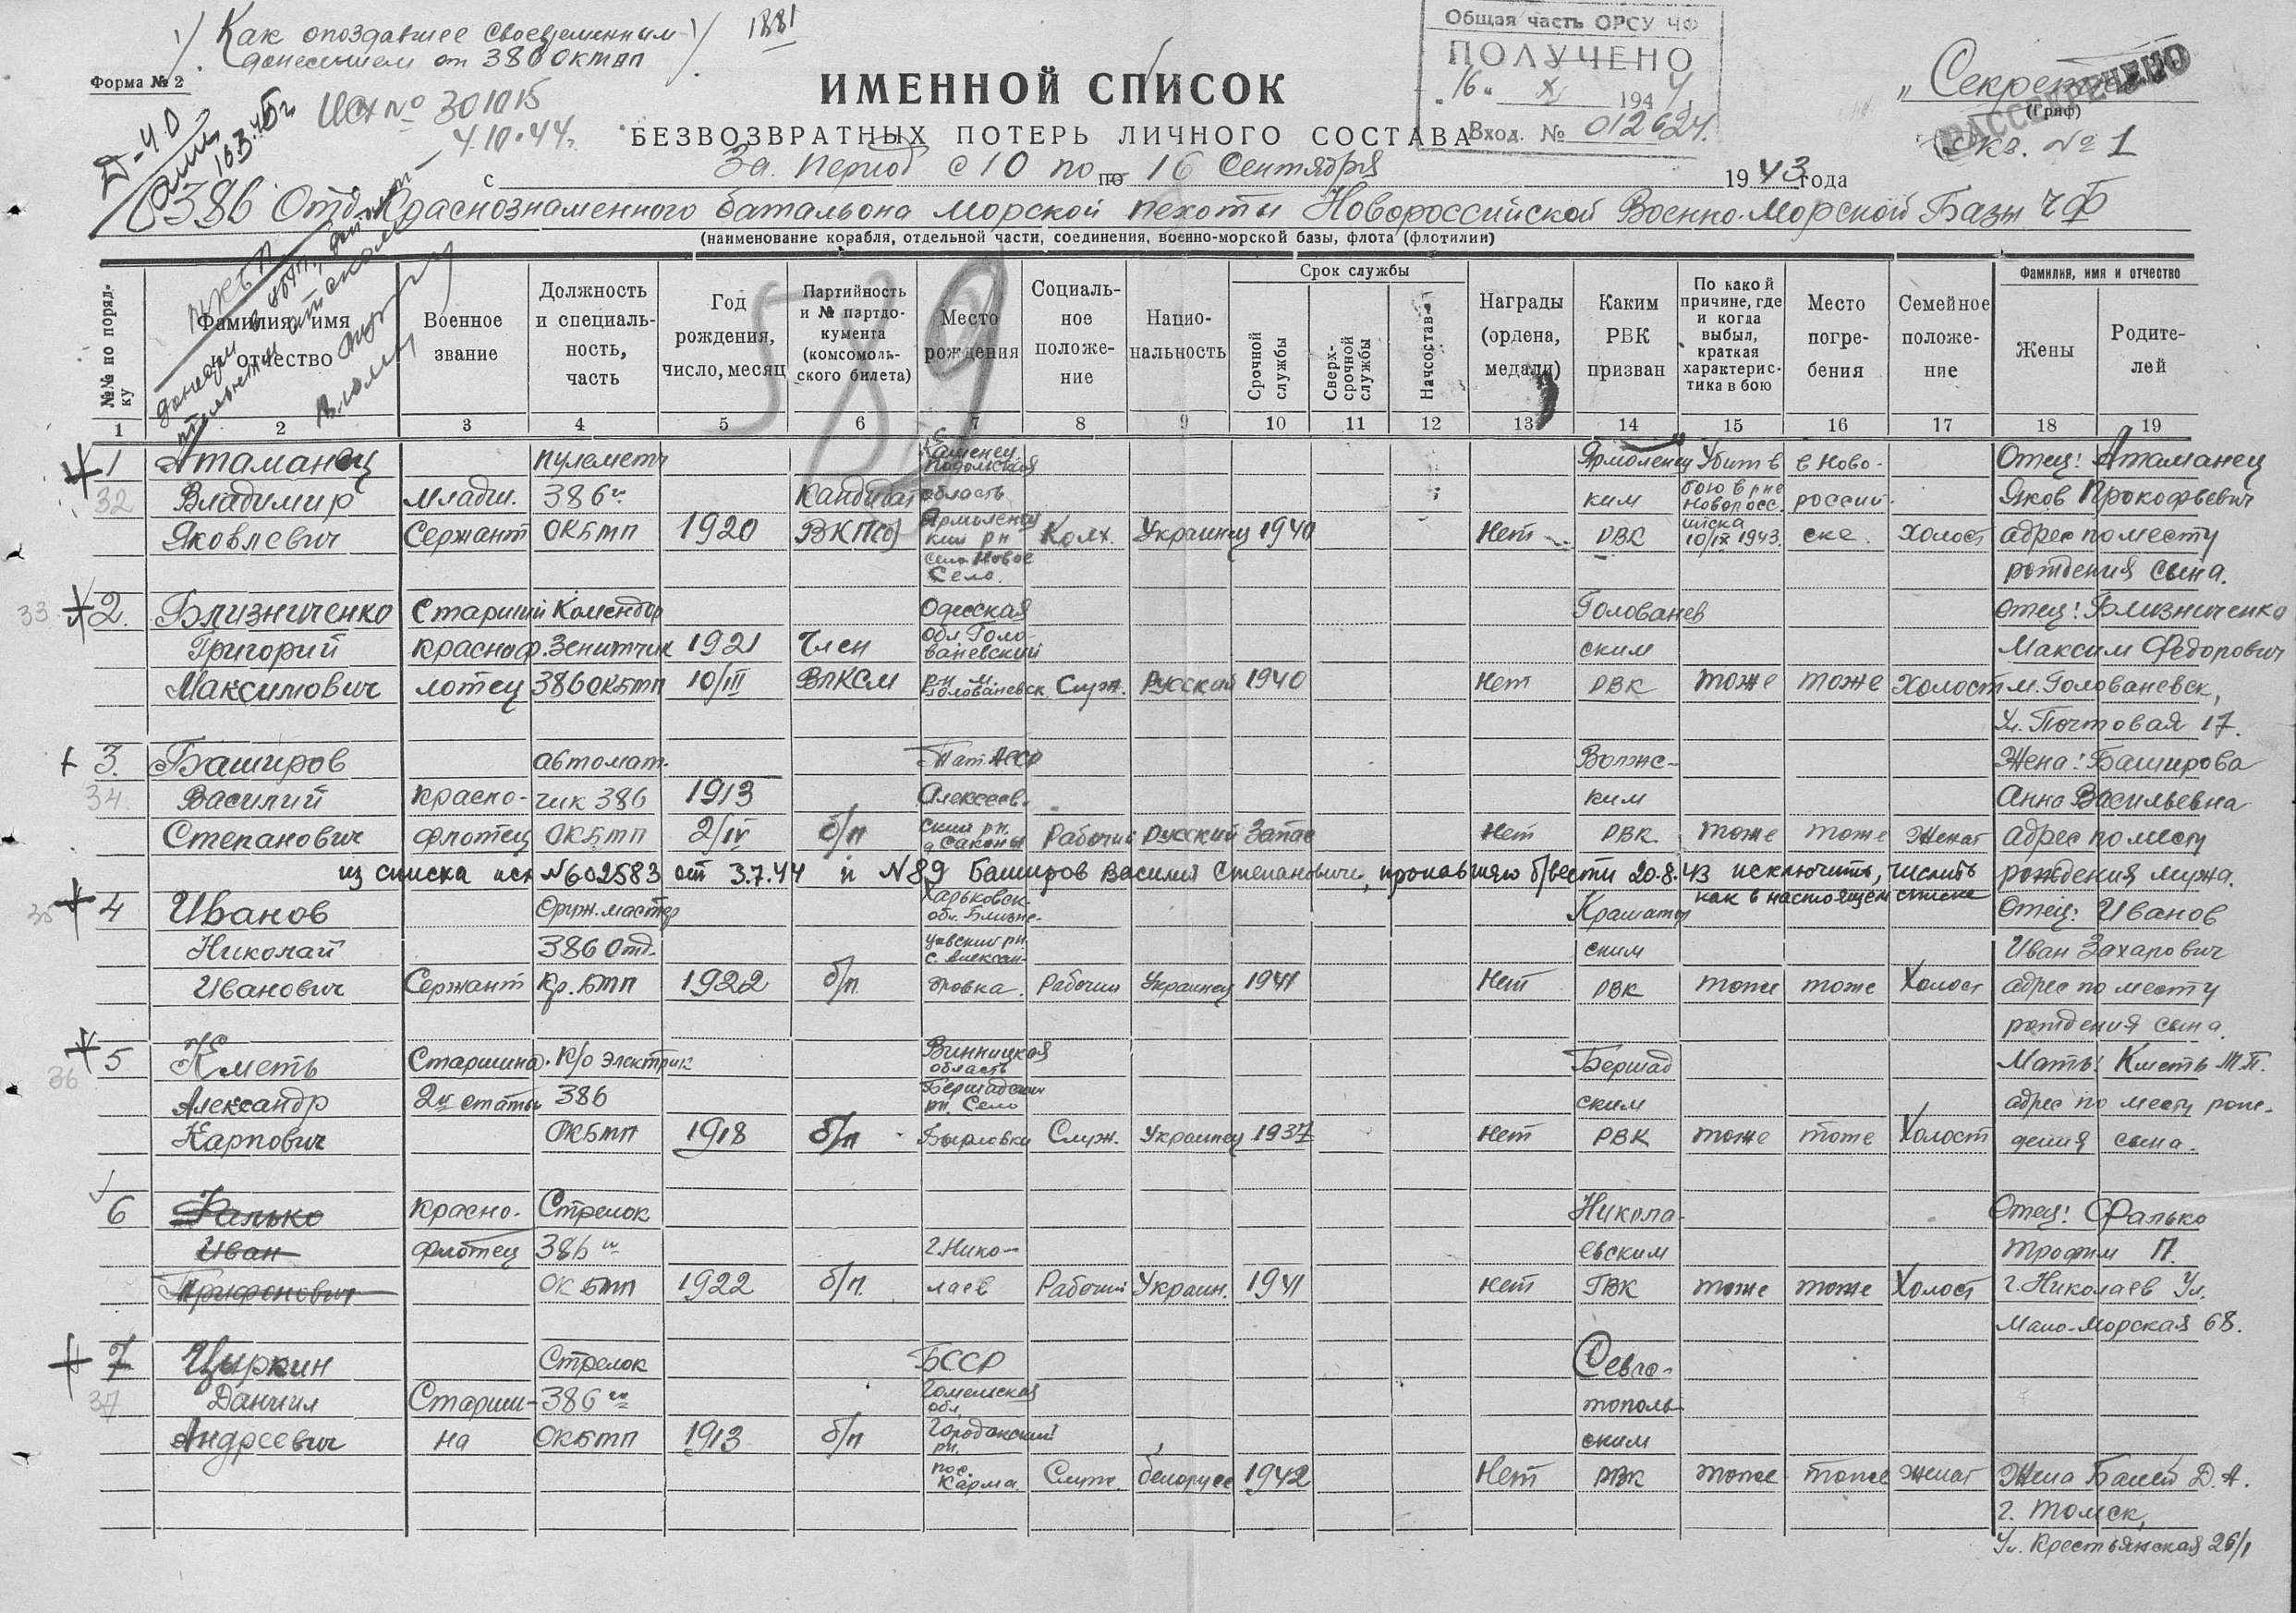 Как опоздавшее своевременным
донесением от 386 окмп
1881
Общая часть ОРСУ ЧФ
ПОЛУЧЕНО
"16" XI 1944
Вход. № 012624.
Форма № 2
Исх № 301015
4.10.44г.
ИМЕННОЙ СПИСОК
БЕЗВОЗВРАТНЫХ ПОТЕРЬ ЛИЧНОГО СОСТАВА
„Секретно"
(Гриф)
РАССЕКРЕЧЕНО
экз. № 1
с За период с 10 по по 16 Сентября 1943 года
386 Отд. Краснознаменного батальона морской пехоты Новороссийской Военно-Морской Базы ЧФ
(наименование корабля, отдельной части, соединения, военно-морской базы, флота (флотилии)
589
№№ по порядку
Фамилия, имя и отчество
Военное звание
Должность и специальность, часть
Год рождения, число, месяц
Партийность и № партдокумента (комсомольского билета)
Место рождения
Социальное положение
Национальность
Срок службы
Срочной службы
Сверхсрочной службы
Начсостав
Награды (ордена, медали)
Каким РВК призван
По какой причине, где и когда выбыл, краткая характеристика в бою
Место погребения
Семейное положение
Фамилия, имя и отчество
Жены
Родителей
1 2 3 4 5 6 7 8 9 10 11 12 13 14 15 16 17 18 19
1 Атаманец пулеметч Каменец Ярмоленец Убит в в Ново- Отец: Атаманец
32 Владимир младш. 386й Кандидат Подольская область ким бою в р-не россий- Яков Прокофьевич
Яковлевич Сержант ОКБМП 1920 ВКП(б) Ярмоленецкий р-н Колх. Украинец 1940 Нет РВК Новороссийска 10/IX 1943. ске. Холост адрес по месту
село Новое Село. рождения сына.
33 2. Близниченко Старший Комендор Одесская Голованев Отец: Близниченко
Григорий красноф. Зенитчик 1921 Член обл Голованевский ским Максим Федорович
Максимович лотец 386 ОКБМП 10/III ВЛКСМ р-н м. Голованевск. Служ. Русский 1940 Нет РВК тоже тоже Холост м. Голованевск,
Ул. Почтовая 17.
3. Баширов автомат- Тат АССР Волжс- Жена: Баширова
34. Василий красно- чик 386 1913 Алексеев- ким Анна Васильевна
Степанович флотец ОКБМП 2/IV б/п ский р-н. Рабочий Русский Запас нет РВК тоже тоже Женат адрес по месту
из списка исх №602583 от 3.7.44 п N89 Баширов Василий Степанович, пропавшего б/вести 20.8.43 исключить, числить рождения мужа.
как в настоящем списке
35 4 Иванов Оруж. мастер Харьковск. Отец: Иванов
Николай 386 Отд. обл. ским Иван Захарович
Иванович Сержант Кр. БМП 1922 б/п. с. Александровка. Рабочий Украинец 1941 Нет РВК тоже тоже Холост адрес по месту
рождения сына.
36 5 Кметь Старшина К/о электрик Винницкая область Бершад Мать: Кметь М.П.
Александр 2й статьи 386 Бершадский р-н. Село ским адрес по месту рож-
Карпович ОКБМП 1918 б/п Бырловка Служ. Украинец 1937 Нет РВК тоже тоже Холост дения сына.
6 Фалько красно- Стрелок Никола- Отец: Фалько
Иван флотец 386й г. Нико- евским Трофим П.
Трифонович ОКБМП 1922 б/п. лаев Рабочий Украин. 1941 нет ГВК тоже тоже Холост г. Николаев Ул.
Мало-Морская 68.
7 Цыркин Стрелок БССР Севас-
37 Даниил Старши- 386й Гомельская обл топольс
Андреевич на ОКБМП 1913 б/п р-н. ским
пос. Карма. Служ. белорусс 1942 Нет РВК тоже тоже женат Жена Д. А.
г. Томск,
Ул. Крестьянская 26/1